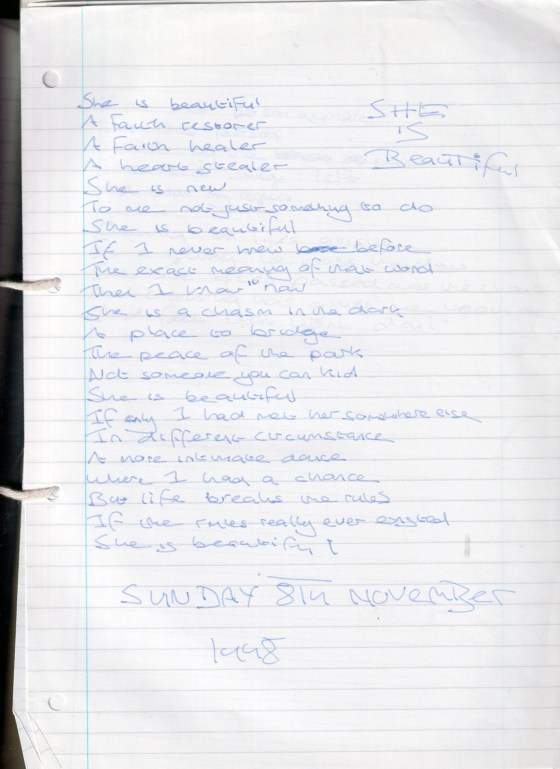 She is beautiful
SHE
IS
Beautiful
A Faith restorer
A Faith healer
A heart stealer
She is new
To me not just something to do
She is beautiful
If I never knew before
The exact meaning of that word
Then I know it now
She is a chasm in the dark
A place to bridge
The peace of the park
Not someone you can kid
She is beautiful
If only I had met her somewhere else
In different circumstance
A more intimate dance
Where I had a chance
But life breaks the rules
If the rules really ever existed
She is beautiful
SUNDAY 8TH NOVEMBER
1998